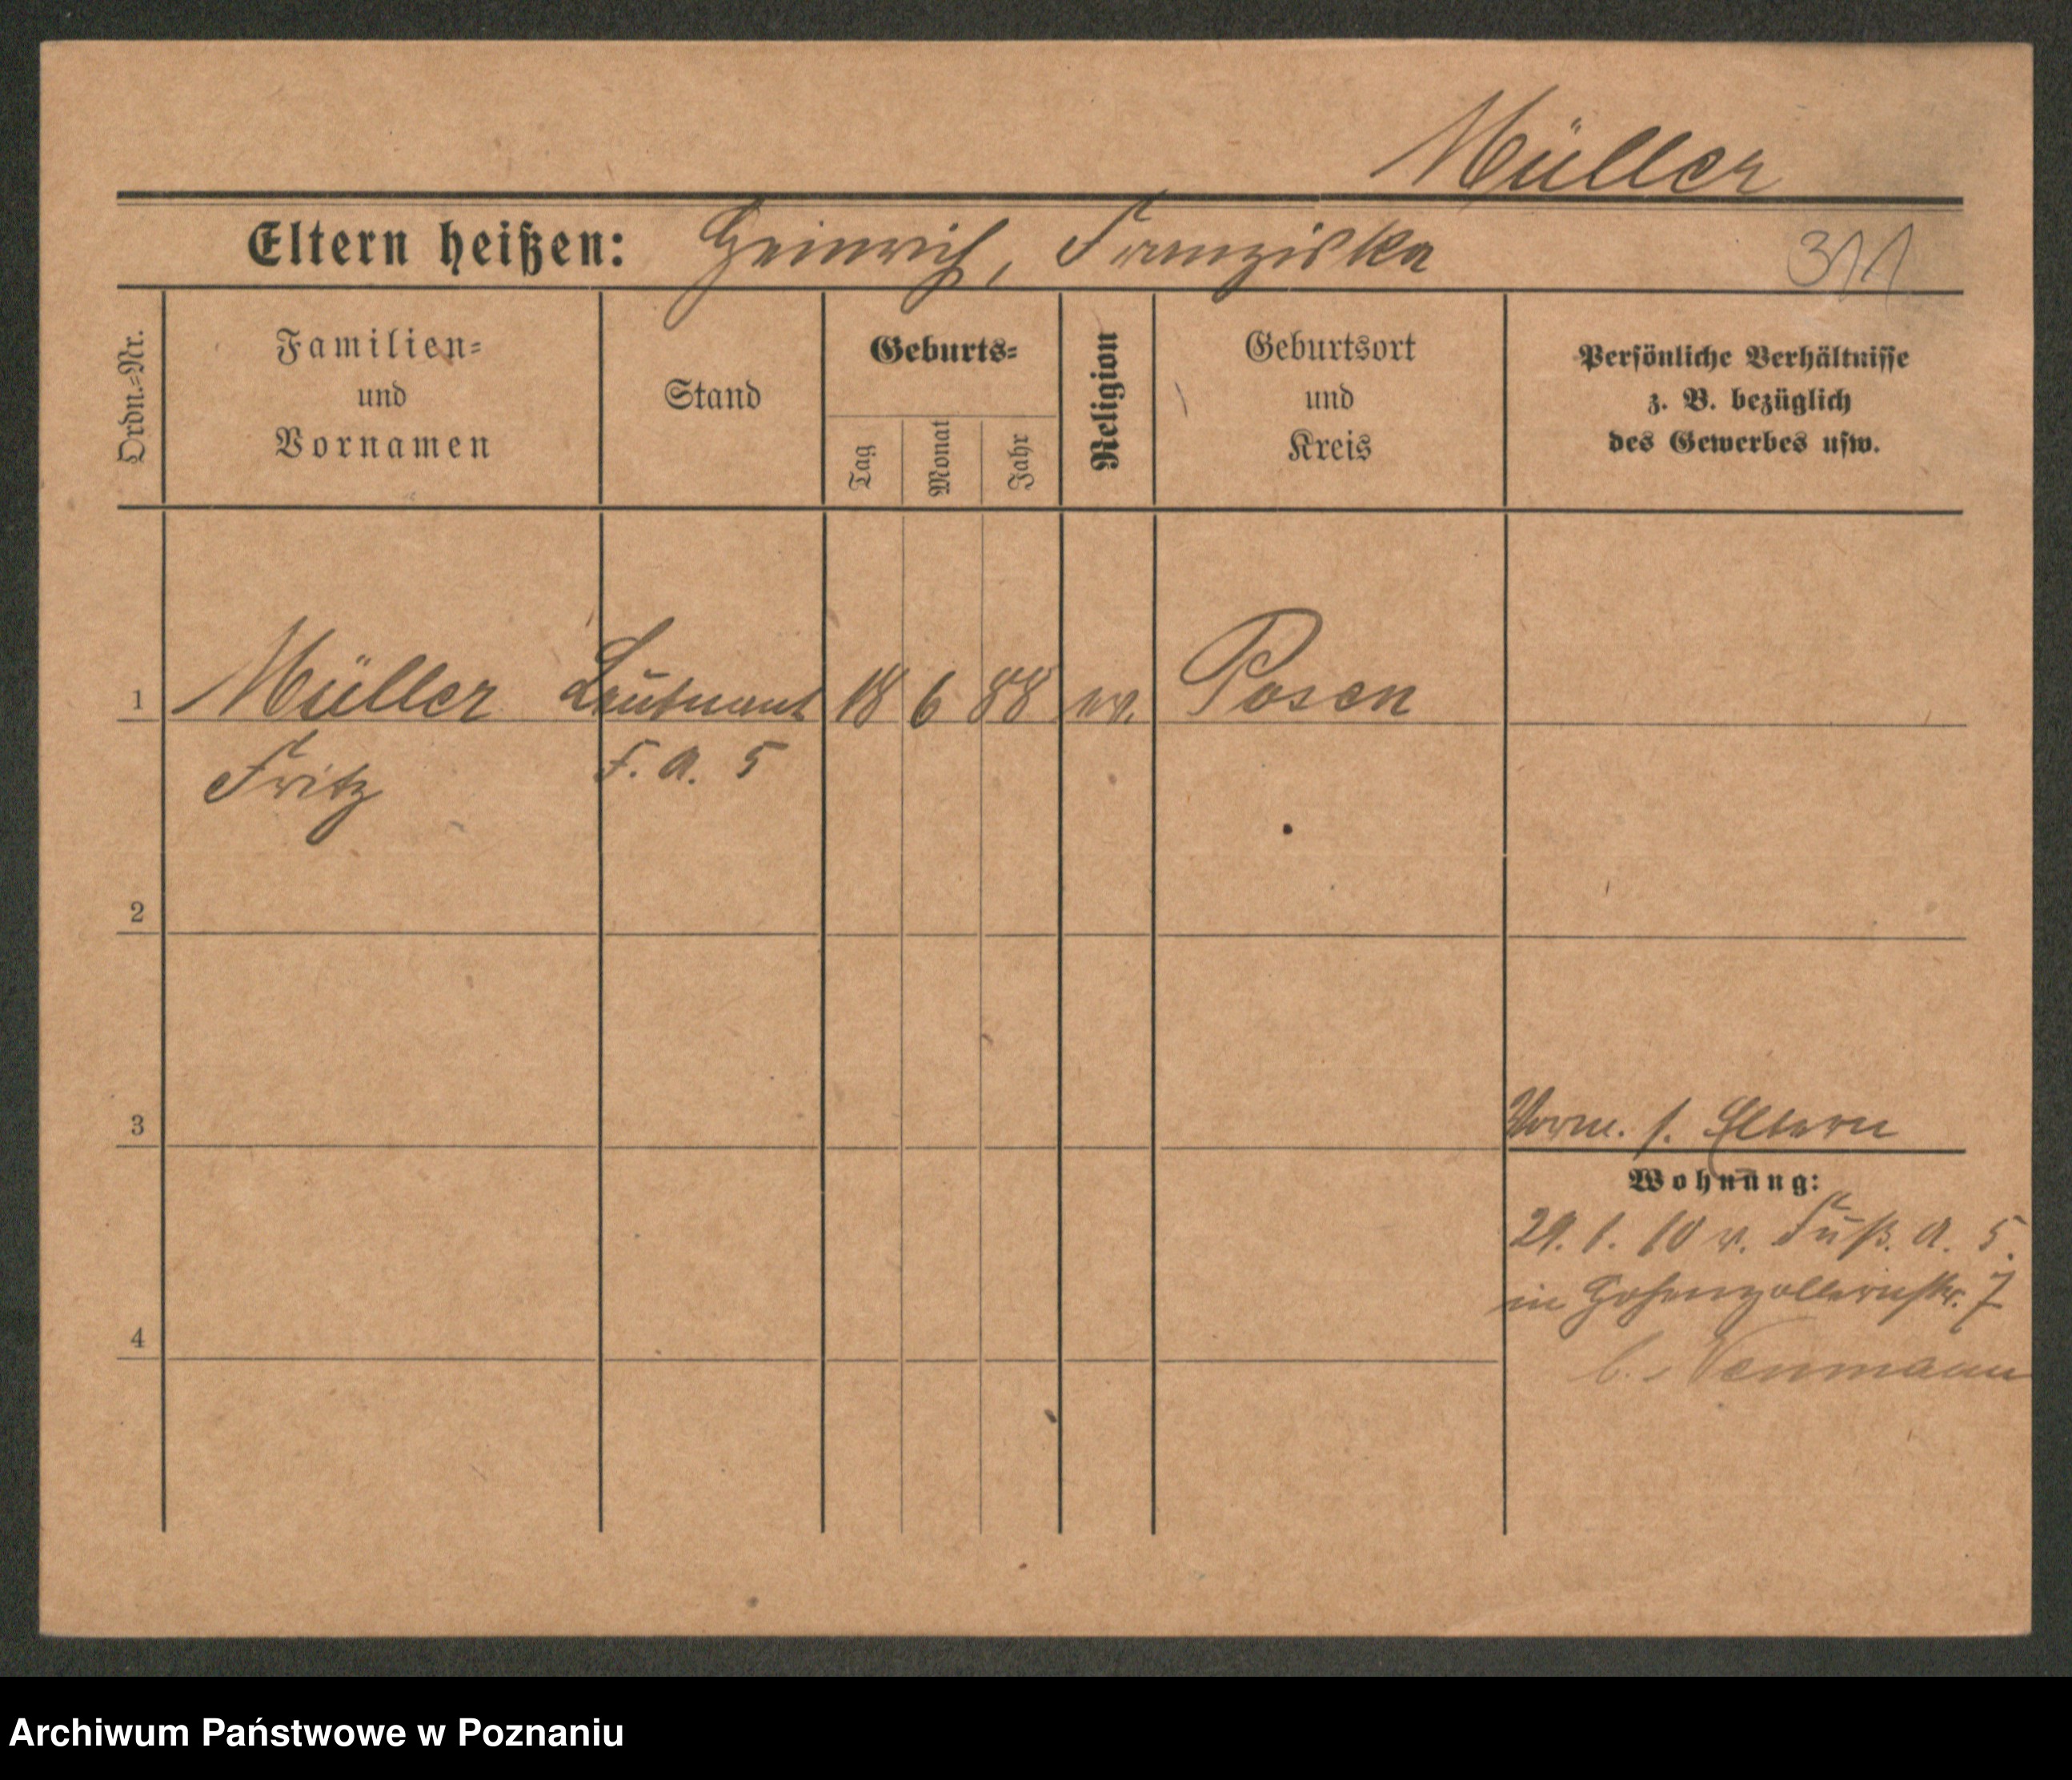 Müller
Eltern heißen: Heinrich, Franziska
311
Ordn.=Nr.
Familien=
und
Vornamen
Stand
Geburts=
Tag
Monat
Jahr
Religion
Geburtsort
und
Kreis
Persönliche Verhältnisse
z. B. bezüglich
des Gewerbes usw.
1 Müller Leutnant 18 6 88 ev. Posen
Fritz F. A. 5
2
3
Vorm. s. Eltern
Wohnung:
29. 1. 10 v. Fuß. A. 5.
in Hohenzollernstr. 7
4
b.
Archiwum Państwowe w Poznaniu